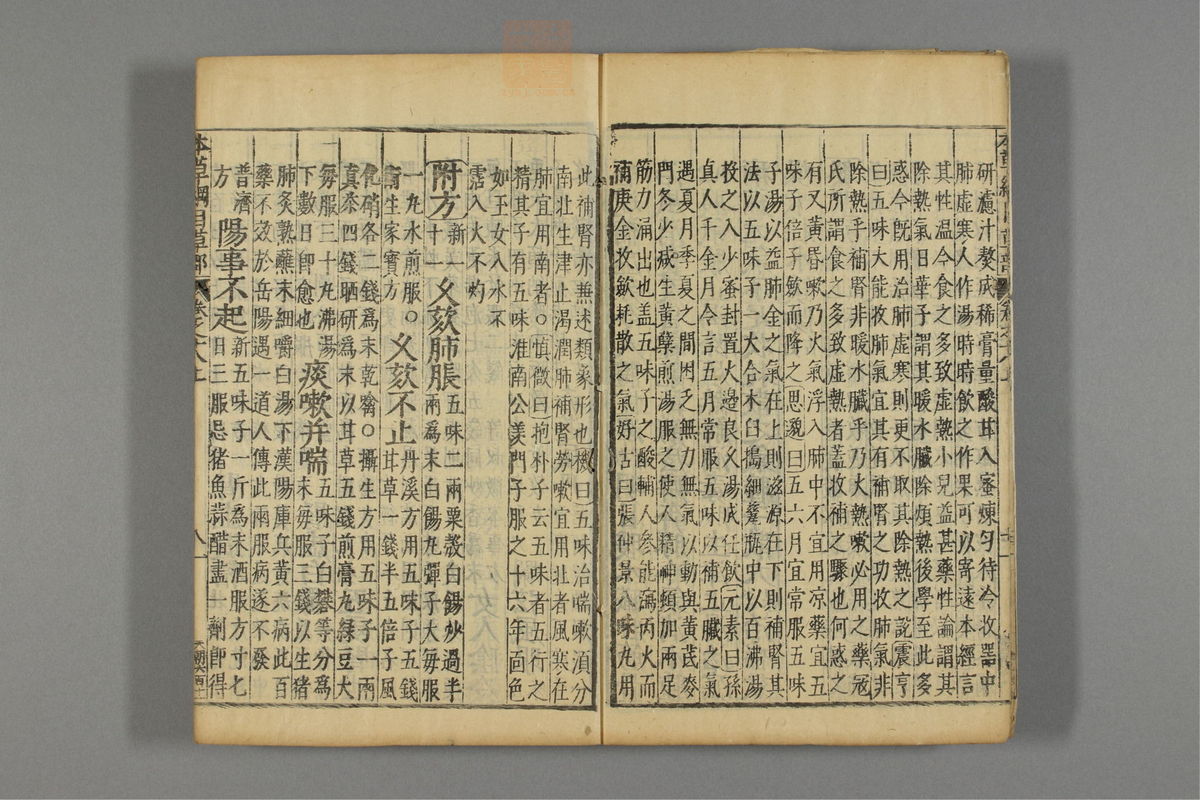 研濾汁熬成稀膏量酸甘入蜜煉勻待冷收器中
肺虛寒人作湯時時飲之作果可以寄遠本經言
其性溫今食之多致虛熱小兒益甚藥性論謂其
除熱氣日華子謂其暖水臟除煩熱後學至此多
惑今旣用治肺虛寒則更不取其除熱之說震亨
曰五味大能收肺氣宜其有補腎之功收肺氣非
除熱乎補腎非暖水臟乎乃火熱嗽必用之藥冦
氏所謂食之多致虛熱者蓋收補之驟也何惑之
有又黃昏嗽乃火氣浮入肺中不宜用凉藥宜五
味子倍子歛而降之思邈曰五六月宜常服五味
子湯以益肺金之氣在上則滋源在下則補腎其
法以五味子一大合木臼搗細瓷瓶中以百沸湯
投之入少蜜封置火邊良久湯成任飲元素曰孫
真人千金月令言五月常服五味以補五臟之氣
遇夏月季夏之間困乏無力無氣以動與黃芪麥
門冬少咸生黃蘗煎湯服之使人精神頓加兩足
筋力涌出也盖五味子之酸輔人參能瀉丙火而
補庚金收歛耗散之氣好古曰張仲景八味丸用
此補腎亦兼述類象形也機曰五味治喘嗽須分
南北生津止渴潤肺補腎勞嗽宜用北者風寒在
肺宜用南者○慎微曰抱朴子云五味者五行之
精其子有五味淮南公羙門子服之十六年面色
如玉女入水不
霑入火不灼
附方新十一 久欬肺脹五味二兩粟殼白餳炒過半兩爲末白餳丸彈子大每服
一丸水煎服○ 久欬不止丹溪方用五味子五錢甘草一錢半五倍子風
化硝各二錢爲末乾噙○攝生方用五味子一兩
真茶四錢晒研爲末以甘草五錢煎膏丸綠豆大
每服三十丸沸湯
下數日卽愈也 痰嗽并喘五味子白礬等分爲末每服三錢以生猪
肺炙熟蘸末細嚼白湯下漢陽庫兵黃六病此百
藥不效於岳陽遇一道人傳此兩服病遂不發
普濟方 陽事不起新五味子一斤爲末酒服方寸七日三服忌猪魚蒜醋盡一劑卽得